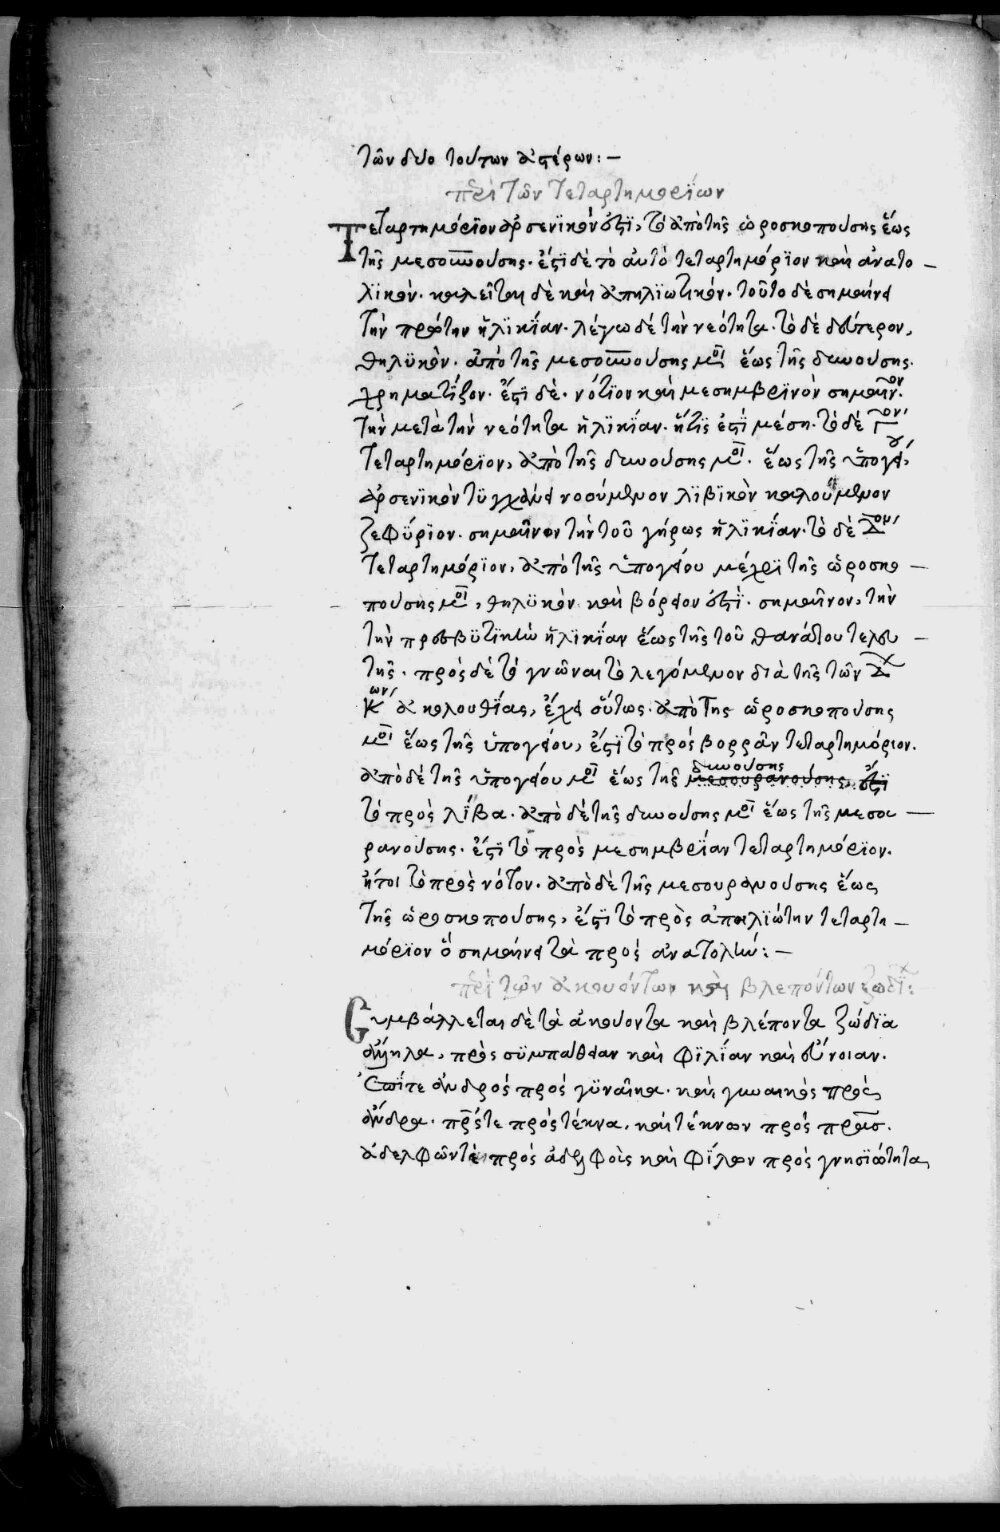 τῶν δυο τούτων ἀστέρων:—
περὶ τῶν τεταρτημορίων
Τεταρτημόριον ἀρσενικὸν ἐστὶ, τὸ ἀπὸ τῆς ὡροσκοπούσης ἕως
τῆς μεσουρανούσης. ἔστι δὲ τὸ αὐτὸ τεταρτημόριον καὶ ἀνατο—
λικὸν. καλεῖται δὲ καὶ ἀπηλιωτικόν. τοῦτο δὲ σημαίνει
τὴν πρώτην ἡλικίαν. λέγω δὲ τὴν νεότητα. τὸ δὲ δεύτερον,
θηλυκὸν. ἀπὸ τῆς μεσουρανούσης μοι ἕως τῆς δυνούσης.
χρηματίζον. ἔστι δὲ. νότιον καὶ μεσημβρινὸν σημαῖνον.
τὴν μετὰ τὴν νεότητα ἡλικίαν. ἥτις ἐστὶ μέση. τὸ δὲ Γον
τεταρτημόριον, ἀπὸ τῆς δυνούσης μοι. ἕως τῆς ὑπογείου,
ἀρσενικὸν τυγχάνει νοσούμενον λιβικὸν καλούμενον
ζεφύριον. σημαῖνον τὴν τοῦ γήρως ἡλικίαν. τὸ δὲ Δον
τεταρτημόριον, ἀπὸ τῆς ὑπογείου μέχρι τῆς ὡροσκο—
πούσης μοι, θηλυκὸν καὶ βόρειον ἐστὶ. σημαῖνον, τὴν
τὴν πρεσβυτικὴν ἡλικίαν ἕως τῆς τοῦ θανάτου τελευ—
τῆς. πρὸς δὲ τὸ γνῶναι τὸ λεγόμενον διὰ τῆς τῶν Δ
κων ἀκολουθίας, ἔχει οὕτως. ἀπὸ τῆς ὡροσκοπούσης
μοι ἕως τῆς ὑπογείου, ἔστι τὸ πρὸς βορρᾶν τεταρτημόριον.
ἀπὸ δὲ τῆς ὑπογείου μοι ἕως τῆς δυνούσης μεσουρανούσης, ἐστὶ
τὸ πρὸς λίβα. ἀπὸ δὲ τῆς δυνούσης μοι ἕως τῆς μεσου—
ρανούσης. ἔστι τὸ πρὸς μεσημβρίαν τεταρτημόριον.
ἤτοι τὸ πρὸς νότον. ἀπὸ δὲ τῆς μεσουρανούσης ἕως
τῆς ὡροσκοπούσης, ἔστι τὸ πρὸς ἀπηλιώτην τεταρτη—
μόριον ὃ σημαίνει τὰ πρὸς ἀνατολὴν:—
περὶ τῶν ἀκουόντων καὶ βλεπόντων ζωδί:
Συμβάλλεται δὲ τὰ ἀκούοντα καὶ βλέποντα ζώδια
ἄλληλα, πρὸς συμπάθειαν καὶ φιλίαν καὶ εὔνοιαν.
ἐπίτε ἀνδρὸς πρὸς γυναῖκα. καὶ γυναικὸς πρὸς
ἄνδρα. πρς τε πρὸς τέκνα. καὶ τέκνων πρὸς πρας.
ἀδελφῶν τὲ πρὸς ἀδελφοὺς καὶ φίλων πρὸς γνησιότητα,